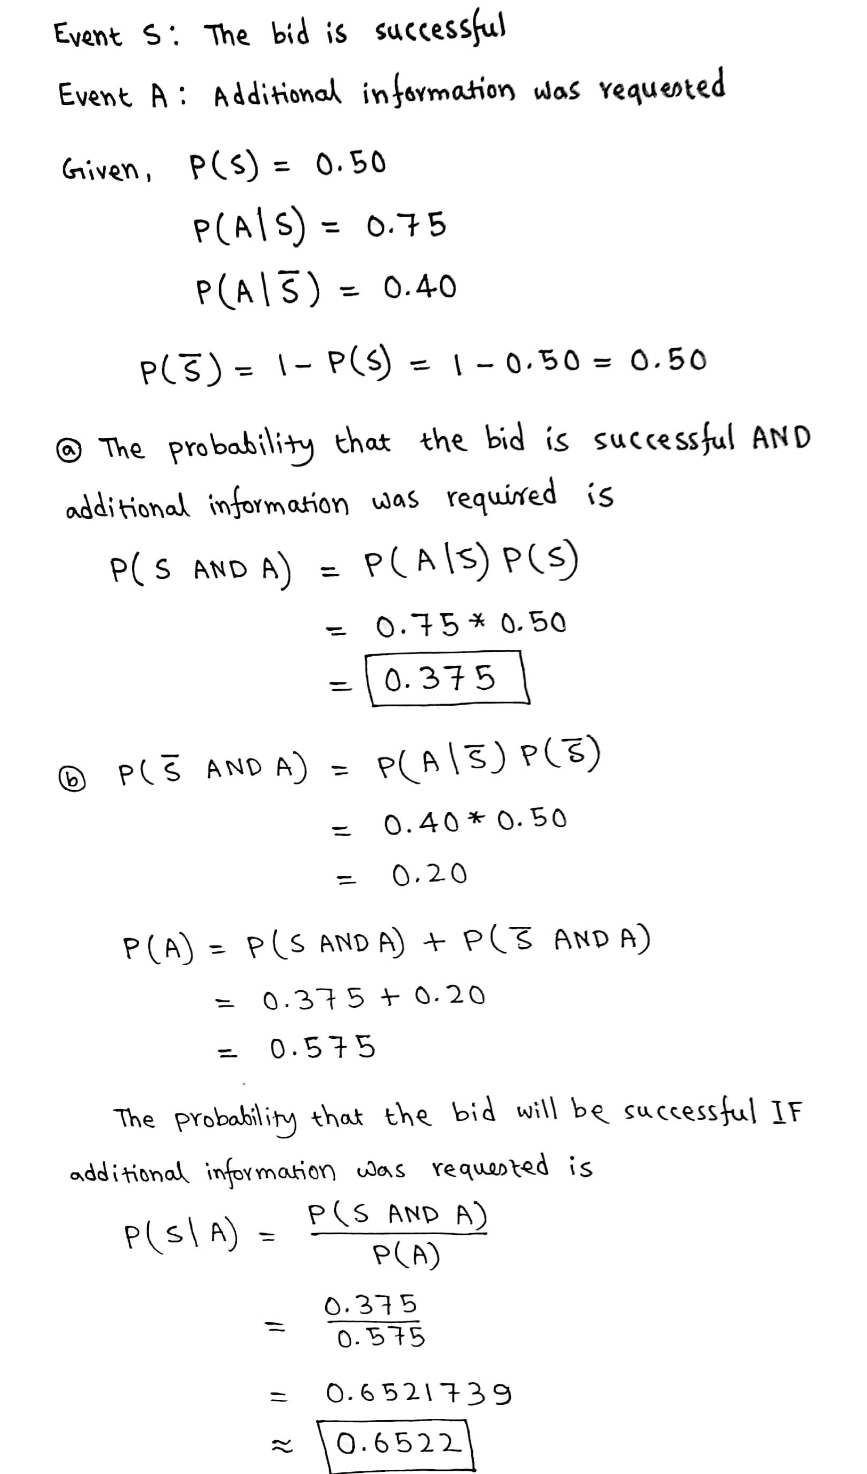 Event S: The bid is successful
Event A: Additional information was requested
Given, P(S) = 0.50
P(A|S) = 0.75
P(A|S̅) = 0.40
P(S̅) = 1 - P(S) = 1 - 0.50 = 0.50
ⓐ The probability that the bid is successful AND
additional information was required is
P(S AND A) = P(A|S) P(S)
= 0.75 * 0.50
= 0.375
ⓑ P(S̅ AND A) = P(A|S̅) P(S̅)
= 0.40 * 0.50
= 0.20
P(A) = P(S AND A) + P(S̅ AND A)
= 0.375 + 0.20
= 0.575
The probability that the bid will be successful IF
additional information was requested is
P(S|A) = P(S AND A)
P(A)
= 0.375
0.575
= 0.6521739
≈ 0.6522